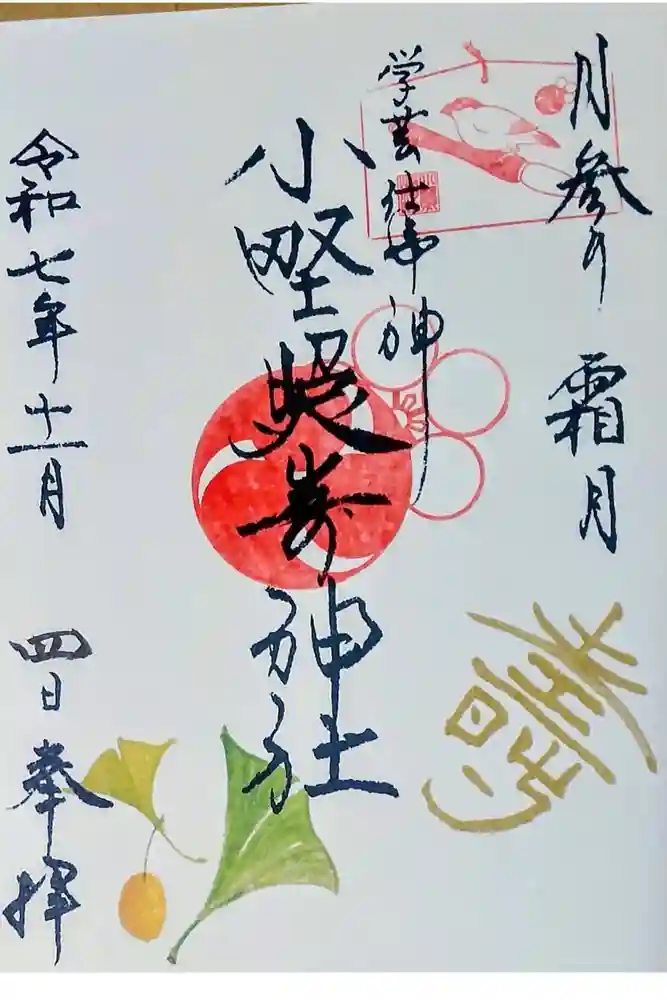 月参り 霜月
壽
学芸仕事神
小野照崎神社
令和七年十一月 四日 奉拝